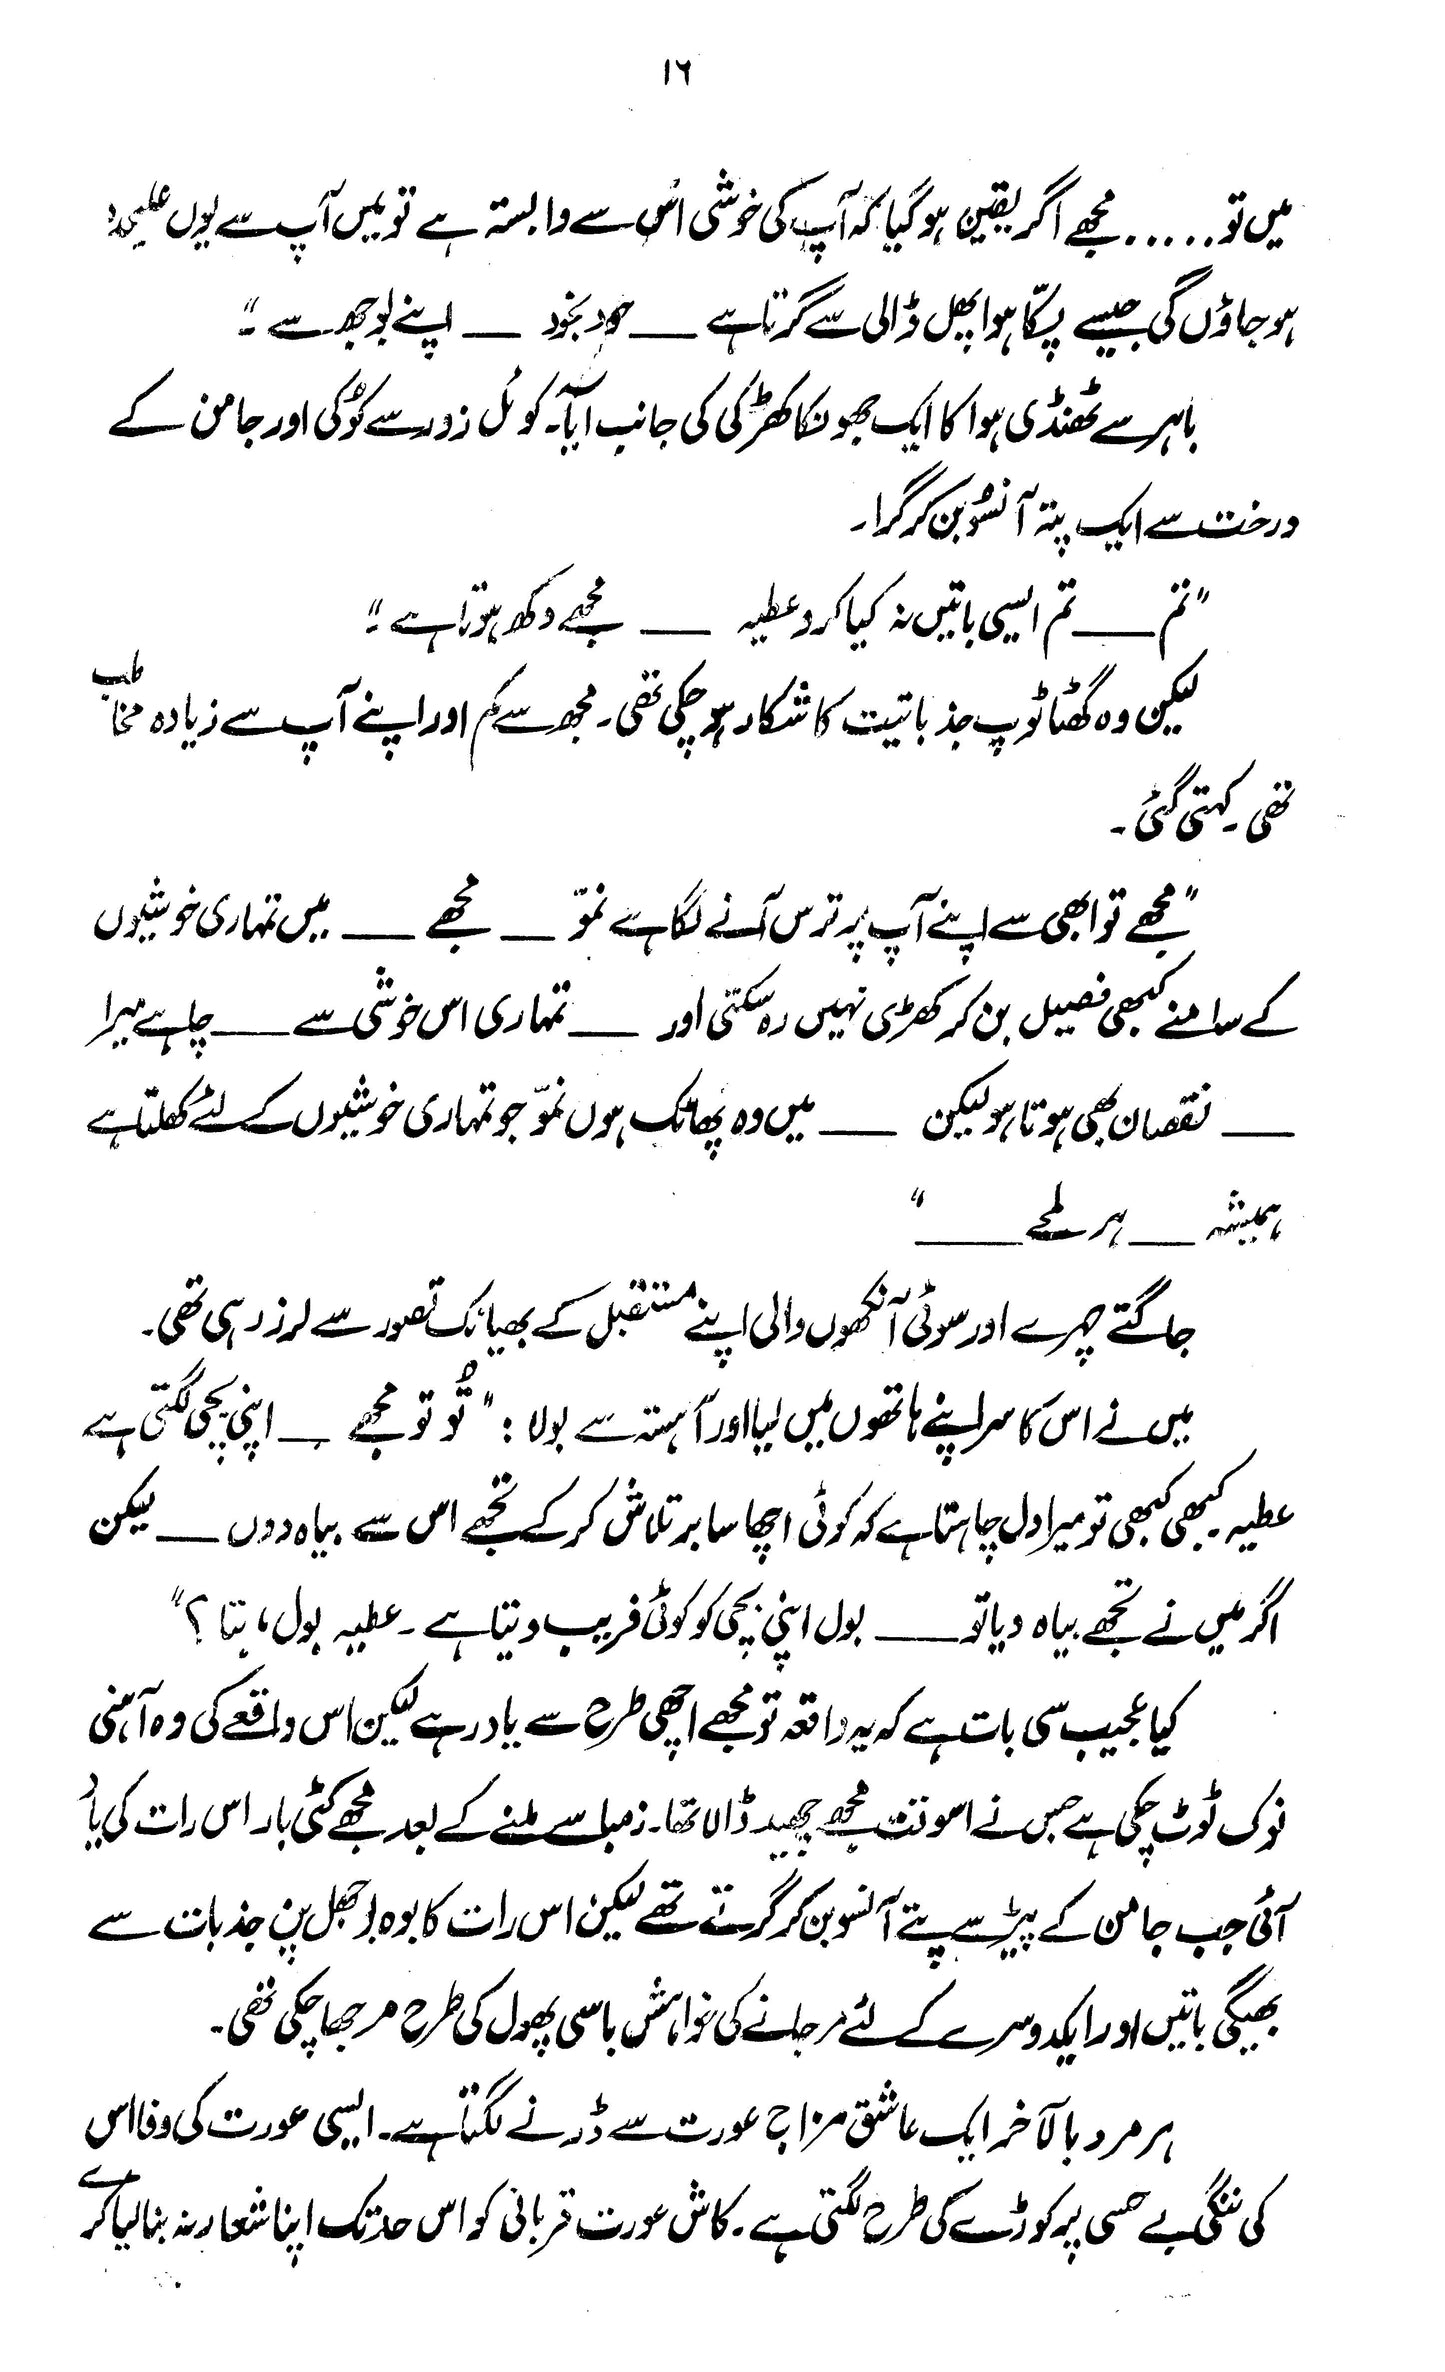 ۱۶
میں تو ..... مجھے اگر یقین ہو گیا کہ آپ کی خوشی اُس سے وابستہ ہے تو میں آپ سے یوں علیحدہ
ہو جاؤں گی جیسے پکّا ہوا پھل ڈالی سے گرتا ہے ___ خود بخود ___ اپنے بوجھ سے ۔"
باہر سے ٹھنڈی ہوا کا ایک جھونکا کھڑکی کی جانب آیا۔ کوئل زور سے کُوکی اور جامن کے
درخت سے ایک پتہ آنسُو بن کر گرا۔
"تم ___ تم ایسی باتیں نہ کیا کرو عطیہ ___ مجھے دکھ ہوتا ہے ۔"
لیکن وہ گھٹا ٹوپ جذباتیت کا شکار ہو چکی تھی۔ مجھ سے کم اور اپنے آپ سے زیادہ مخاطب
تھی۔ کہتی گئی۔
"مجھے تو ابھی سے اپنے آپ پر ترس آنے لگا ہے نموّ ___ مجھے ___ میں تمہاری خوشیوں
کے سامنے کبھی فصیل بن کر کھڑی نہیں رہ سکتی اور ___ تمہاری اس خوشی سے ___ چاہے میرا
___ نقصان بھی ہوتا ہو لیکن ___ میں وہ پھاٹک ہوں نموّ جو تمہاری خوشیوں کے لئے کھلتا ہے
ہمیشہ ___ ہر لمحے ___"
جاگتے چہرے اور سوئی آنکھوں والی اپنے مستقبل کے بھیانک تصور سے لرز رہی تھی۔
میں نے اس کا سر اپنے ہاتھوں میں لیا اور آہستہ سے بولا : "تُو تو مجھے ___ اپنی بچی لگتی ہے
عطیہ۔ کبھی کبھی تو میرا دل چاہتا ہے کہ کوئی اچھا سا بر تلاش کر کے تجھے اس سے بیاہ دوں ___ لیکن
اگر میں نے تجھے بیاہ دیا تو ___ بول اپنی بچی کو کوئی فریب دیتا ہے ۔ عطیہ بول، بتا ؟"
کیا عجیب سی بات ہے کہ یہ واقعہ تو مجھے اچھی طرح سے یاد رہے لیکن اس واقعے کی وہ آہنی
نوک ٹوٹ چکی ہے جس نے اسوقت مجھے چھید ڈالا تھا۔ زیبا سے ملنے کے بعد مجھے کئی بار اس رات کی یاد
آئی جب جامن کے پیڑ سے پتے آنسو بن کر گرتے تھے لیکن اس رات کا بوجھل پن جذبات سے
بھیگی باتیں اور ایکدوسرے کے لئے مر جانے کی خواہش باسی پھول کی طرح مرجھا چکی تھی۔
ہر مرد بالآخر ایک عاشق مزاج عورت سے ڈرنے لگتا ہے۔ ایسی عورت کی وفا اس
کی ننگی بے حسی پر کوڑے کی طرح لگتی ہے۔ کاش عورت قربانی کو اس حد تک اپنا شعار نہ بنا لیا کرے